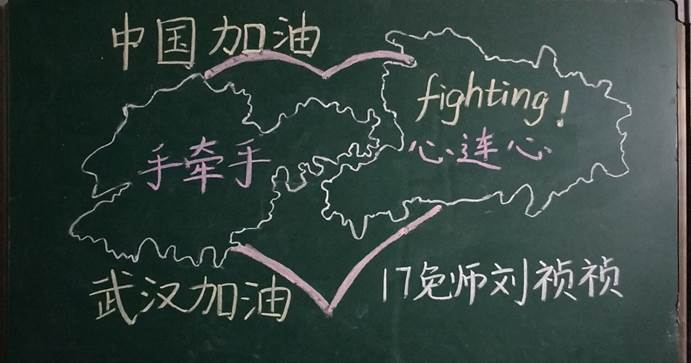 中国加油
fighting!
手牵手
心连心
武汉加油
17免师刘祯祯